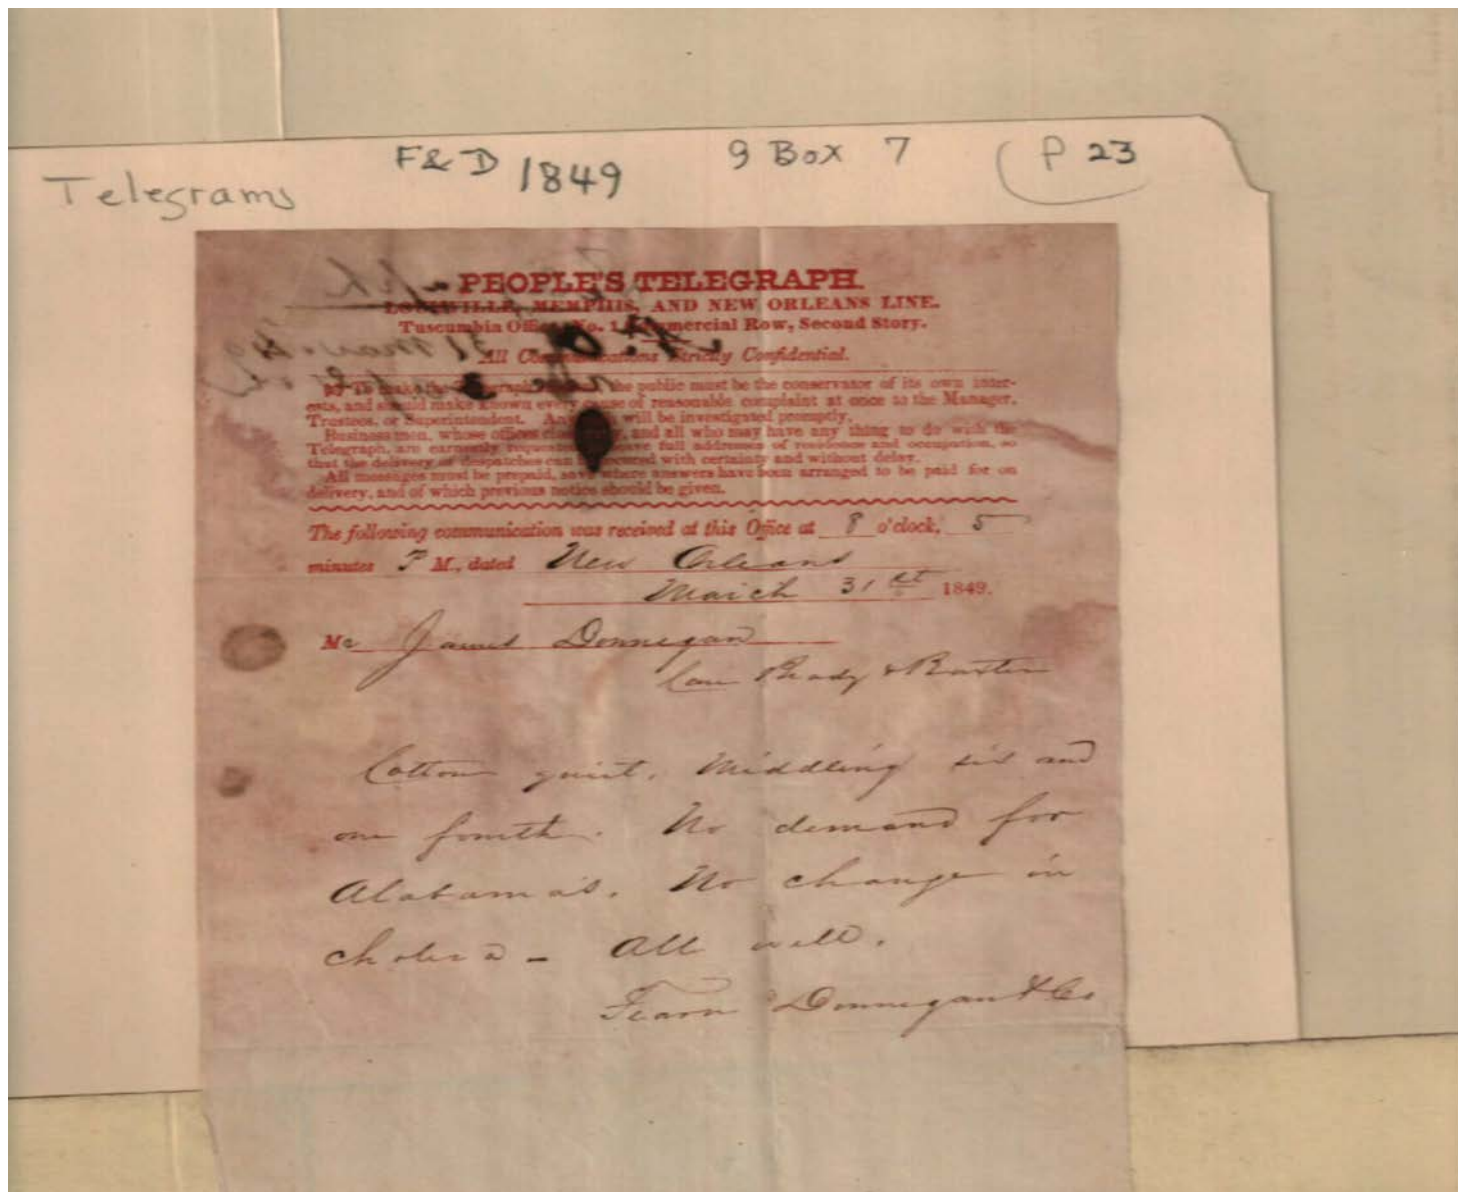 F&D 1849 9 Box 7 P 23
Telegrams
PEOPLE'S TELEGRAPH.
LOUISVILLE, MEMPHIS, AND NEW ORLEANS LINE.
Tuscumbia Office, No. 1, Commercial Row, Second Story.
All Communications Strictly Confidential.
To make the Telegraph the public must be the conservator of its own inter-
ests, and should make known every cause of reasonable complaint at once to the Manager,
Trustees, or Superintendent. will be investigated promptly.
Business men, whose offices and all who may have any thing to do with the
Telegraph, are earnestly requested full addresses of residence and occupation, so
that the delivery of dispatches can be secured with certainty and without delay.
All messages must be prepaid, save where answers have been arranged to be paid for on
delivery, and of which previous notice should be given.
The following communication was received at this Office at 8 o'clock, 5
minutes P M., dated New Orleans
March 31st 1849.
Mr James Donnegan
Care Brady & Baxter
Cotton quiet. Middling six and
one fourth. No demand for
Alabamas. No change in
cholera - All well.
Fearn Donnegan & Co